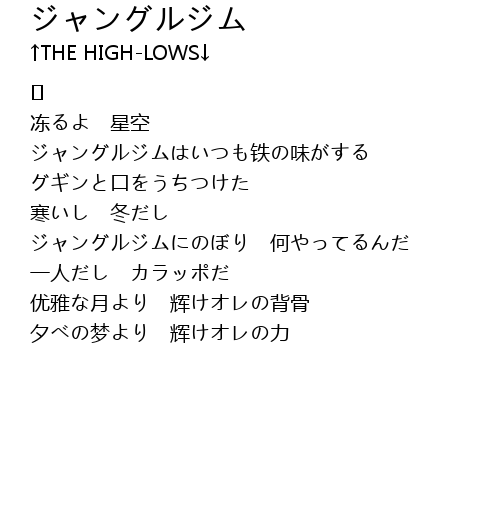 ジャングルジム
↑THE HIGH-LOWS↓
冻るよ　星空
ジャングルジムはいつも铁の味がする
グギンと口をうちつけた
寒いし　冬だし
ジャングルジムにのぼり　何やってるんだ
一人だし　カラッポだ
优雅な月より　辉けオレの背骨
夕べの梦より　辉けオレの力